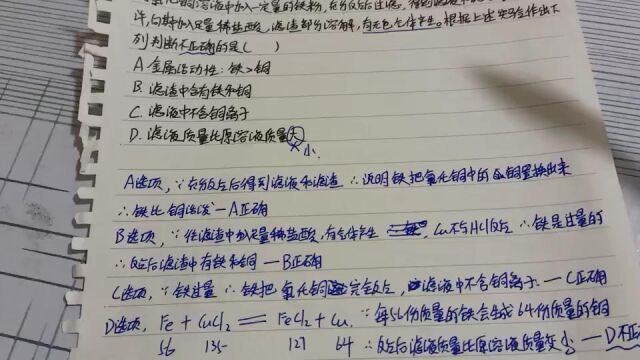 氯化铜溶液中加入一定量的铁粉，充分反应后过滤，得到滤液和
滓，向其加足量稀盐酸，滤渣部分溶解，有无色气体产生。根据上述实验作出下
列判断不正确的是（ ）
A 金属活动性：铁>铜
B. 滤渣中含有铁和铜
C. 滤液中不含铜离子
D. 滤液质量比原溶液质量大
小.
A选项，∵充分反应后得到滤液和滤渣 ∴说明铁把氯化铜中的铜置换出来
∴铁比铜活泼—A正确
B选项，∵往滤渣中加足量稀盐酸，有气体产生，Cu不与HCl反应 ∴铁是过量的
∴反应后滤渣中有铁和铜—B正确
C选项，∵铁过量 ∴铁把氯化铜完全反应，滤液中不含铜离子—C正确
D选项，Fe + CuCl₂ ═ FeCl₂ + Cu，∵每56份质量的铁会生成64份质量的铜
56 135 127 64 ∴反应后滤液质量比原溶液质量变小—D不正